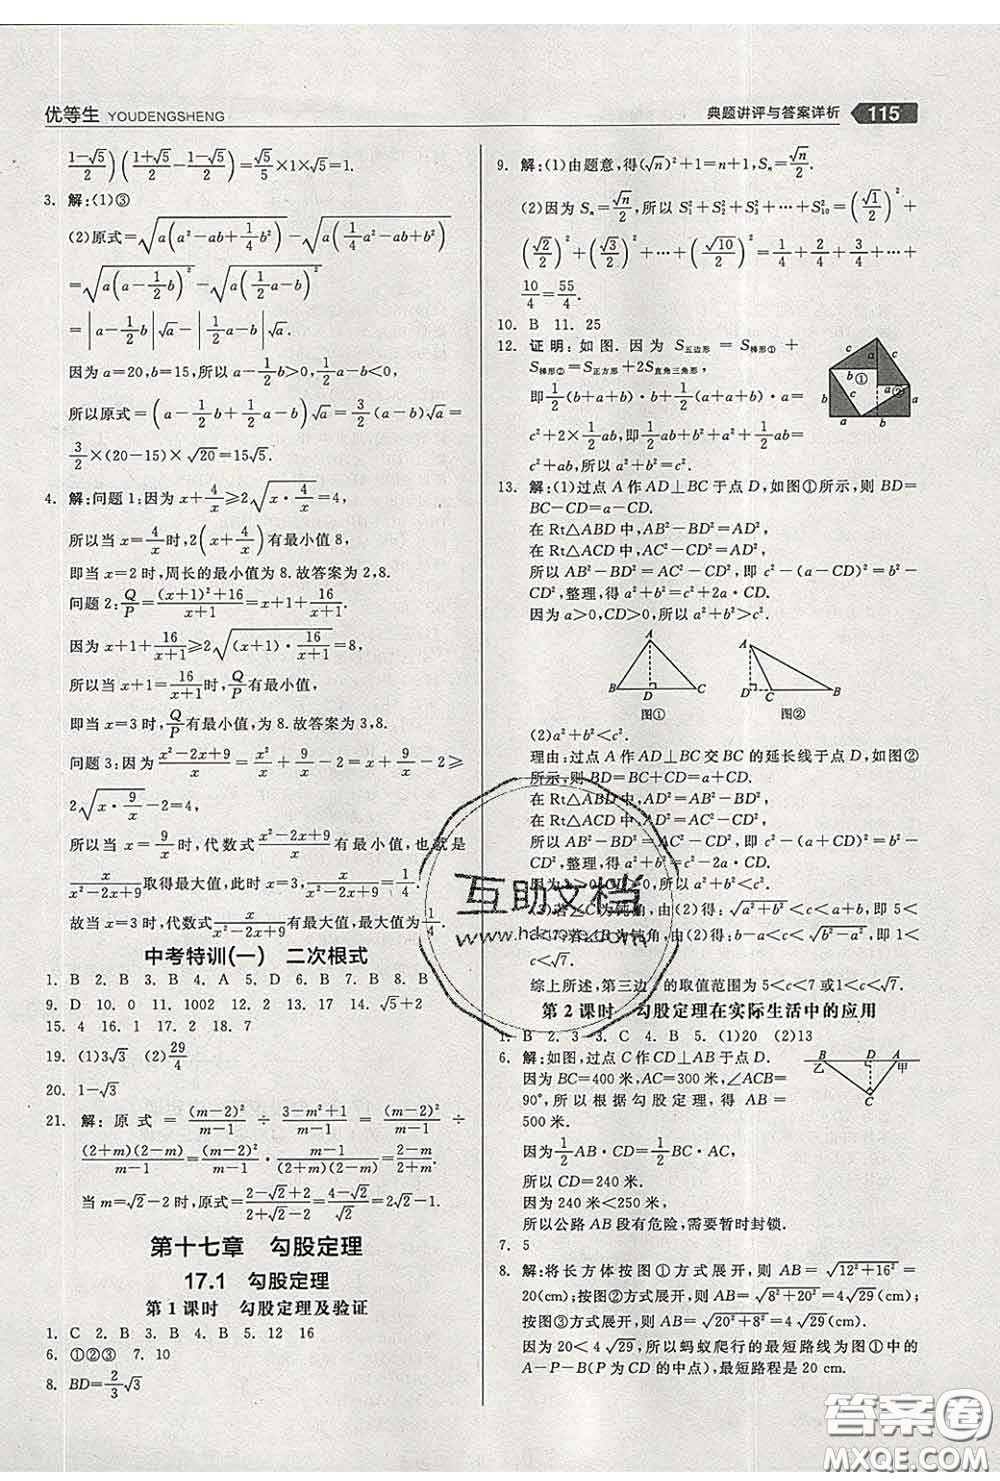 优等生 YOUDENGSHENG
典题讲评与答案详析 115
(1-√5)/2)((1+√5)/2-(1-√5)/2)=√5/5×1×√5=1.
3. 解:(1)③
(2)原式=√(a(a²-ab+1/4b²))-√(a(1/4a²-ab+b²))
=√(a(a-1/2b)²)-√(a(1/2a-b)²)
=|a-1/2b|√a-|1/2a-b|√a.
因为a=20,b=15,所以a-1/2b>0,1/2a-b<0,
所以原式=(a-1/2b+1/2a-b)√a=3/2(a-b)√a=
3/2×(20-15)×√20=15√5.
4. 解:问题1:因为x+4/x≥2√(x·4/x)=4,
所以当x=4/x时,2(x+4/x)有最小值8,
即当x=2时,周长的最小值为8.故答案为2,8.
问题2:Q/P=((x+1)²+16)/(x+1)=x+1+16/(x+1).
因为x+1+16/(x+1)≥2√((x+1)·16/(x+1))=8,
所以当x+1=16/(x+1)时,Q/P有最小值,
即当x=3时,Q/P有最小值,为8.故答案为3,8.
问题3:因为(x²-2x+9)/x=x+9/x-2=x+9/x-2≥
2√(x·9/x)-2=4,
所以当x=9/x时,代数式(x²-2x+9)/x有最小值,也就是
x/(x²-2x+9)取得最大值,此时x=3,x/(x²-2x+9)有最大值1/4.
故当x=3时,代数式x/(x²-2x+9)有最大值,最大值为1/4.
中考特训(一) 二次根式
1. B 2. B 3. C 4. A 5. D 6. B 7. B 8. B
9. D 10. 0 11. 1002 12. 2 13. 7 14. √5+2
15. 4 16. 1 17. 2 18. 7
19. (1)3√3 (2)29/4
20. 1-√3
21. 解:原式=(m-2)²/(m-1)÷(3-m²+1)/(m-1)=(m-2)²/(m-1)÷
(2+m)(2-m)/(m-1)=(m-2)²/(m-1)·(m-1)/((2+m)(2-m))=(2-m)/(2+m).
当m=√2-2时,原式=(2-√2+2)/(2+√2-2)=(4-√2)/√2=2√2-1.
第十七章 勾股定理
17.1 勾股定理
第1课时 勾股定理及验证
1. C 2. B 3. B 4. B 5. 12 16
6. ①②③ 7. 10
8. BD=2/3√3
9. 解:(1)由题意,得(√n)²+1=n+1,Sₙ=√n/2.
(2)因为Sₙ=√n/2,所以S₁²+S₂²+S₃²+…+S₁₀²=(√1/2)²+
(√2/2)²+(√3/2)²+…+(√10/2)²=1/4+2/4+3/4+…+
10/4=55/4.
10. B 11. 25
12. 证明:如图.因为S五边形=S梯形①+
S梯形②=S正方形+2S直角三角形,
即1/2(b+a+b)·b+1/2(a+a+b)·a=
c²+2×1/2ab,即1/2ab+b²+a²+1/2ab=
c²+ab,所以a²+b²=c².
c c a b ① a ② c b c b a a b
13. 解:(1)过点A作AD⊥BC于点D,如图①所示,则BD=
BC-CD=a-CD.
在Rt△ABD中,AB²-BD²=AD²,
在Rt△ACD中,AC²-CD²=AD²,
所以AB²-BD²=AC²-CD²,即c²-(a-CD)²=b²-
CD²,整理,得a²+b²=c²+2a·CD.
因为a>0,CD>0,所以a²+b²>c².
A B D C 图①
A D C B 图②
(2)a²+b²<c².
理由:过点A作AD⊥BC交BC的延长线于点D,如图②
所示,则BD=BC+CD=a+CD.
在Rt△ABD中,AB²-BD²=AD²,
在Rt△ACD中,AC²-CD²=AD²,
所以AB²-BD²=AC²-CD²,即c²-(a+CD)²=b²-
CD²,整理,得a²+b²=c²-2a·CD.
(2)得:√(a²+b²)<c<a+b,即5<
角,由(2)得:b-a<c<√(b²-a²),即1<
c<√7.
综上所述,第三边c的取值范围为5<c<7或1<c<√7.
第2课时 勾股定理在实际生活中的应用
1. B 2. 3 3. C 4. B 5. (1)20 (2)13
6. 解:如图,过点C作CD⊥AB于点D.
因为BC=400米,AC=300米,∠ACB=
90°,所以根据勾股定理,得AB=
500米.
因为1/2AB·CD=1/2BC·AC,
所以CD=240米.
因为240米<250米,
所以公路AB段有危险,需要暂时封锁.
B D A 乙 甲 C
7. 5
8. 解:将长方体按图①方式展开,则AB=√(12²+16²)=
20(cm);按图②方式展开,则AB=√(8²+20²)=4√29(cm);
按图③方式展开,则AB=√(20²+8²)=4√29(cm).
因为20<4√29,所以蚂蚁爬行的最短路线为图①中的
A-P-B(P为CD的中点),最短路程是20 cm.
互助文档
www.hdk
答案圈
MXQE.COM